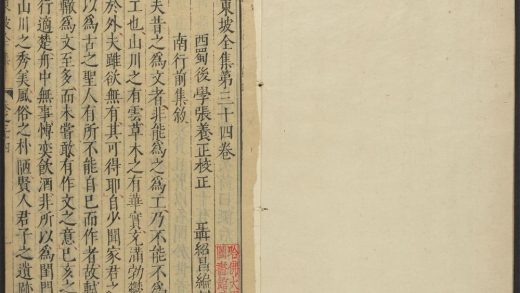 東坡全集第三十四卷
西蜀後學張養正校正　聶紹昌編
南行前集敘
夫昔之爲文者非能爲之爲工乃不能不爲
工也山川之有雲草木之有華實充滿勃鬱
於外夫雖欲無有其可得耶自少聞家君之
以爲古之聖人有所不能自已而作者故軾
轍爲文至多而未嘗敢有作文之意已亥之
行適楚舟中無事博奕飲酒非所以爲閨門
山川之秀美風俗之朴陋賢人君子之遺跡
坡全集
哈佛大
圖書館